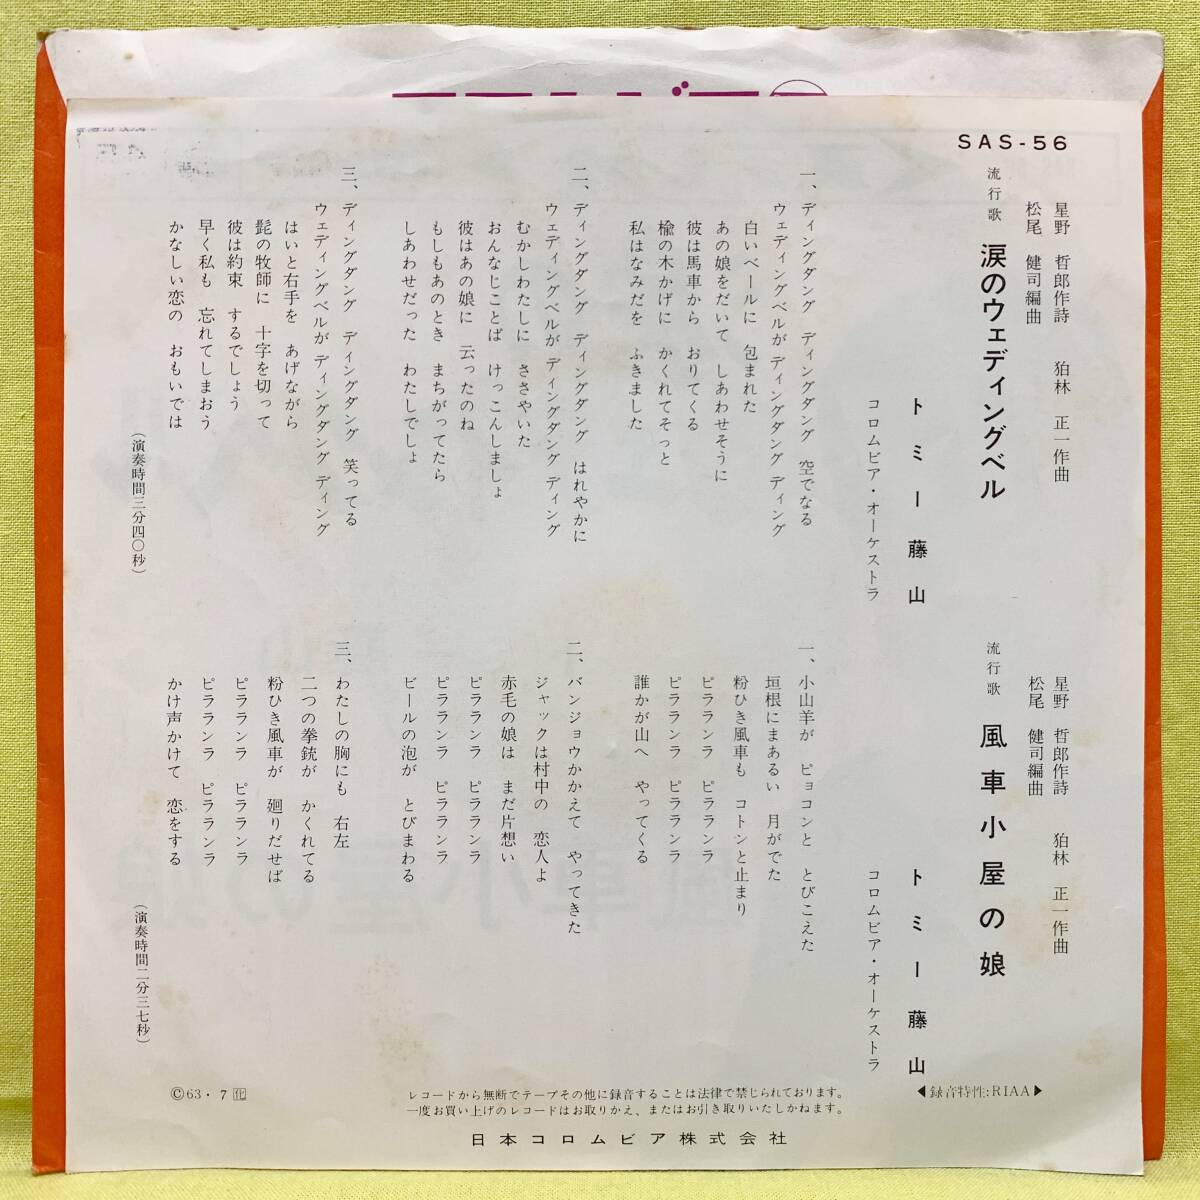 SAS-56
星野 哲郎作詩 狛林 正一作曲
松尾 健司編曲
流行歌 涙のウェディングベル
トミー藤山
コロムビア・オーケストラ
一、ディングダング ディングダング 空でなる
ウェディングベルが ディングダング ディング
白いベールに 包まれた
あの娘をだいて しあわせそうに
彼は馬車から おりてくる
楡の木かげに かくれてそっと
私はなみだを ふきました
二、ディングダング ディングダング はれやかに
ウェディングベルが ディングダング ディング
むかしわたしに ささやいた
おんなじことば けっこんしましょ
彼はあの娘に 云ったのね
もしもあのとき まちがってたら
しあわせだった わたしでしょ
三、ディングダング ディングダング 笑ってる
ウェディングベルが ディングダング ディング
はいと右手を あげながら
髭の牧師に 十字を切って
彼は約束 するでしょう
早く私も 忘れてしまおう
かなしい恋の おもいでは
(演奏時間三分四〇秒)
星野 哲郎作詩 狛林 正一作曲
松尾 健司編曲
流行歌 風車小屋の娘
トミー藤山
コロムビア・オーケストラ
一、小山羊が ピョコンと とびこえた
垣根にまあるい 月がでた
粉ひき風車も コトンと止まり
ピラランラ ピラランラ
ピラランラ ピラランラ
誰かが山へ やってくる
二、バンジョウかかえて やってきた
ジャックは村中の 恋人よ
赤毛の娘は まだ片想い
ピラランラ ピラランラ
ピラランラ ピラランラ
ビールの泡が とびまわる
三、わたしの胸にも 右左
二つの拳銃が かくれてる
粉ひき風車が 廻りだせば
ピラランラ ピラランラ
ピラランラ ピラランラ
かけ声かけて 恋をする
(演奏時間二分三七秒)
◀録音特性:RIAA▶
レコードから無断でテープその他に録音することは法律で禁じられております。
一度お買い上げのレコードはお取りかえ、またはお引き取りいたしかねます。
日本コロムビア株式会社
Ⓒ63・7 化